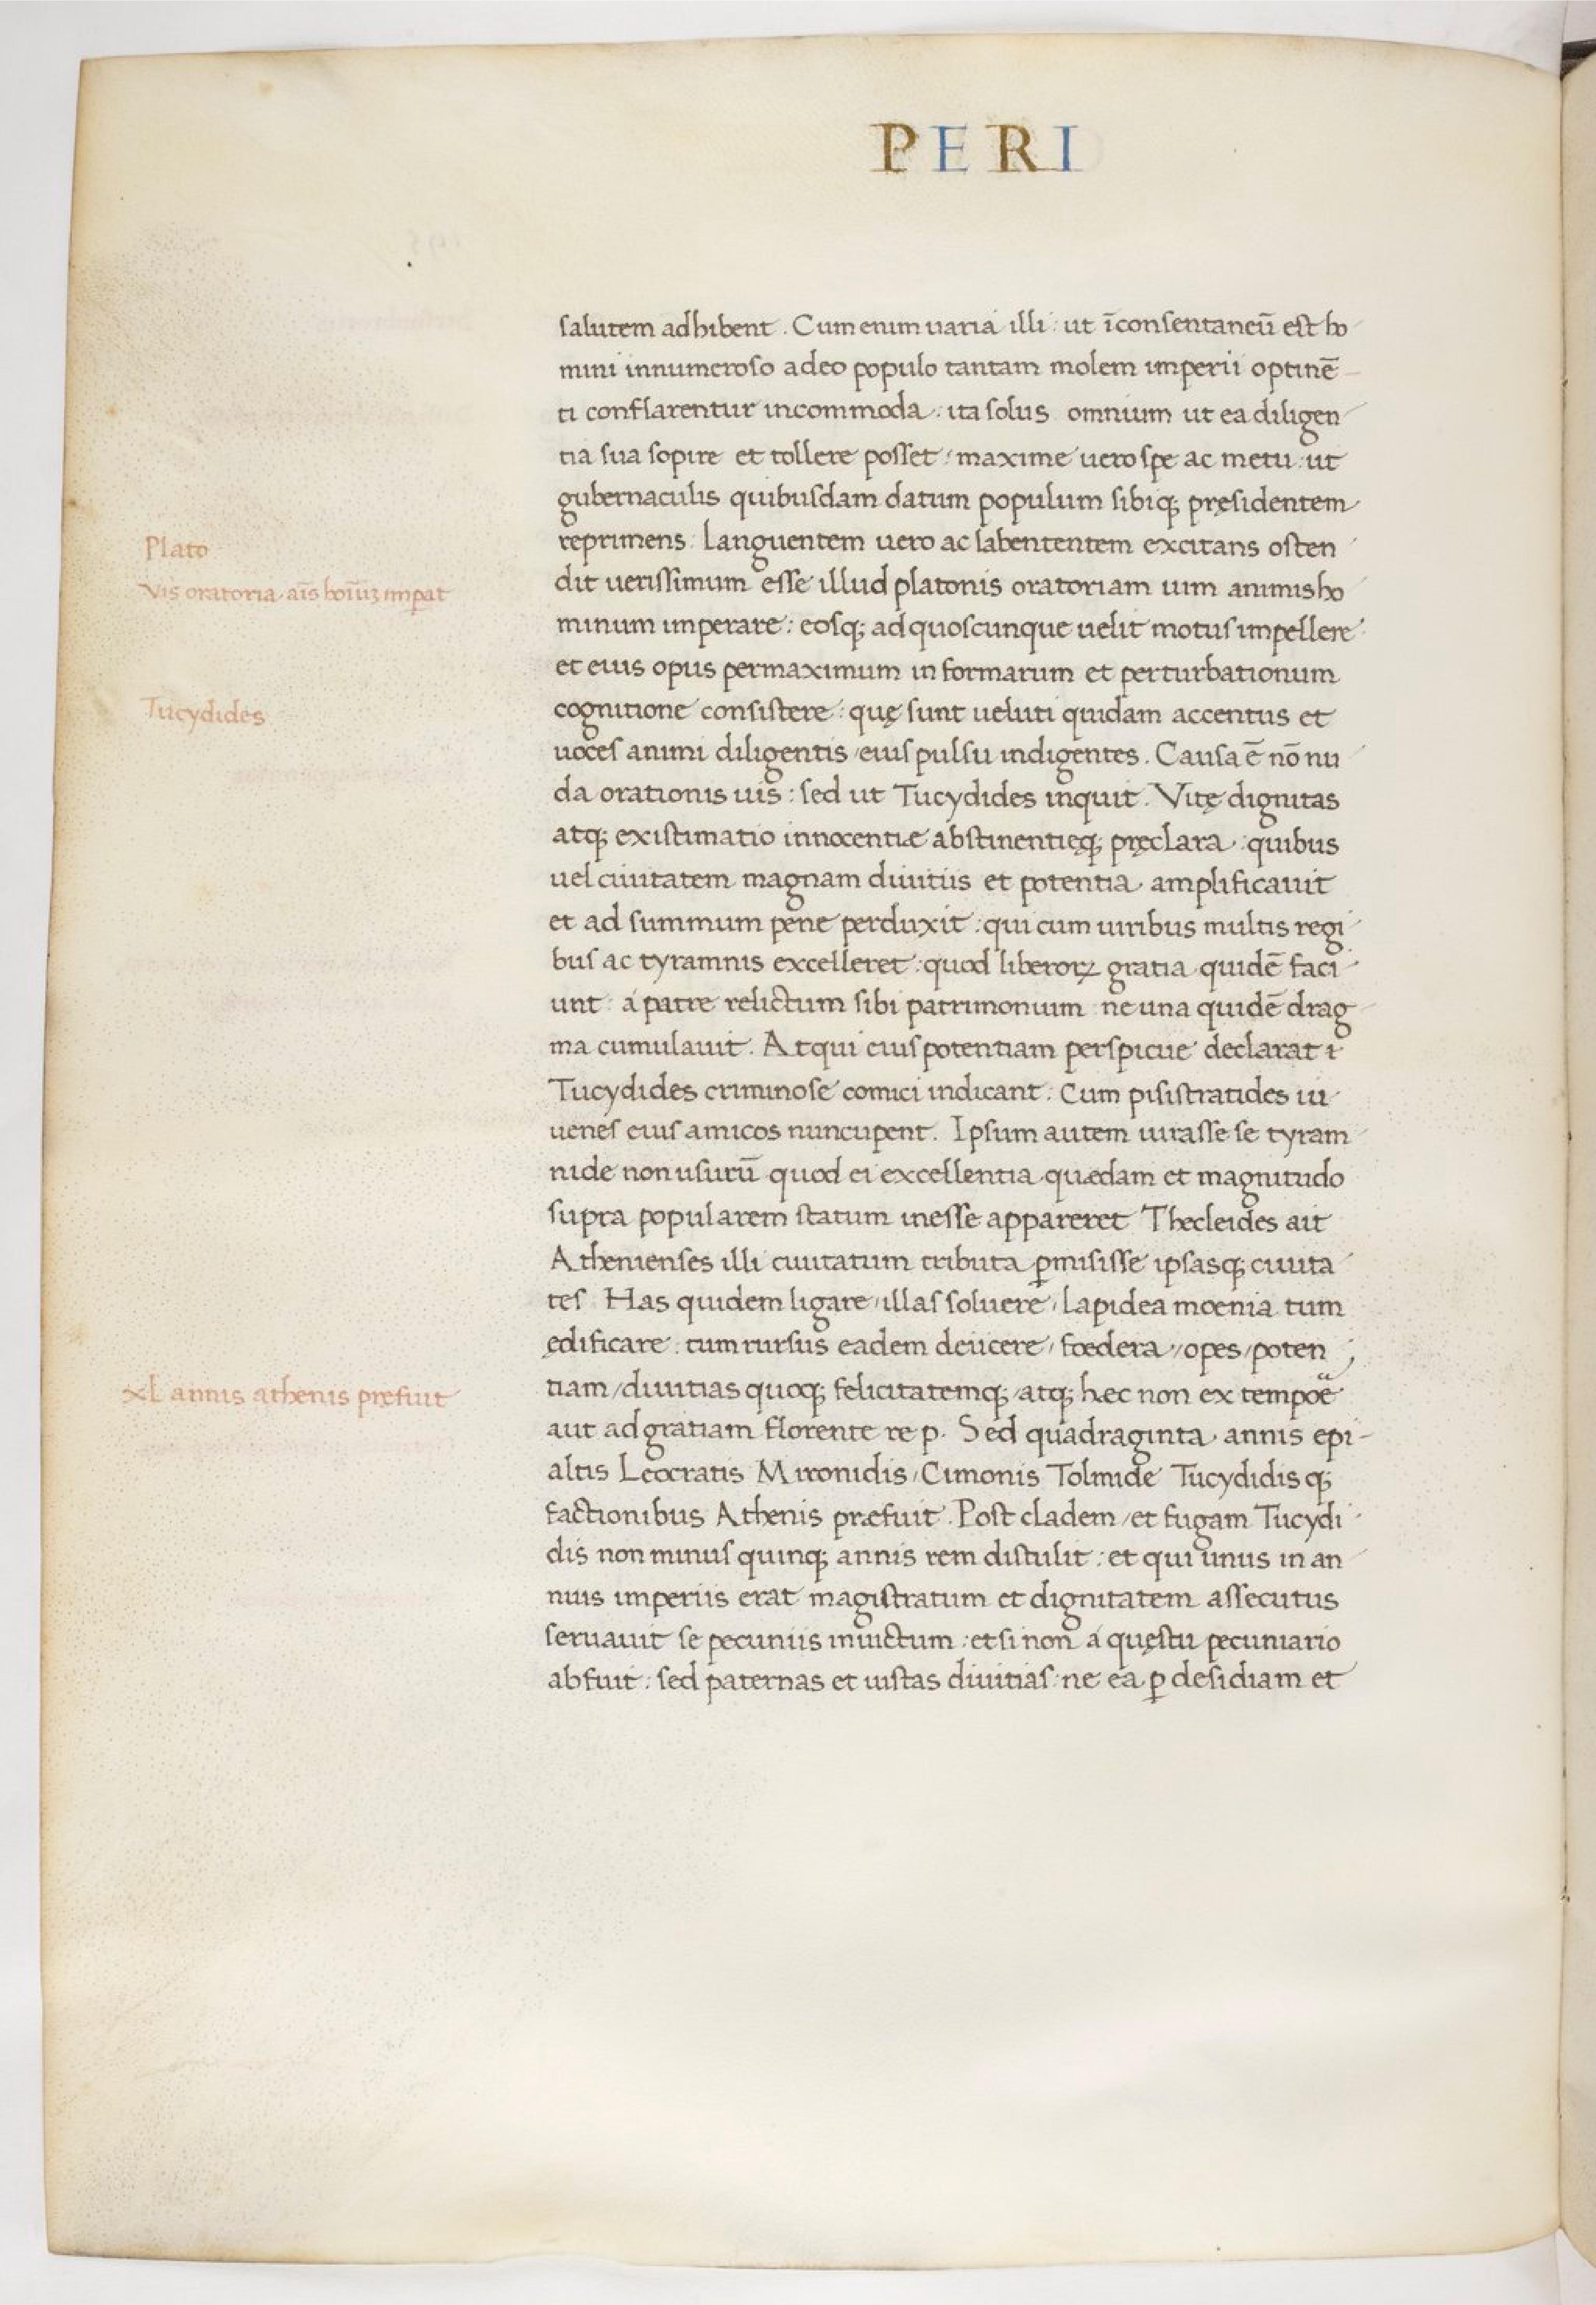 PERI
salutem adhibent. Cum enim uaria illi: ut īconsentaneū est ho
mini innumeroso adeo populo tantam molem imperii optinē
ti conflarentur incommoda: ita solus omnium ut ea diligen
tia sua sopire et tollere posset: maxime uero spe ac metu: ut
gubernaculis quibusdam datum populum sibiq; pręsidentem
reprimens. Languentem uero ac labententem excitans osten
dit uerissimum esse illud platonis oratoriam uim animis ho
minum imperare: eosq; ad quoscunque uelit motus impellere
et eius opus permaximum in formarum et perturbationum
cognitione consistere: quę sunt ueluti quidam accentus et
uoces animi diligentis eius pulsu indigentes. Causa ē nō nu
da orationis uis: sed ut Tucydides inquit. Vitę dignitas
atq; existimatio innocentiæ abstinentięq; pręclara: quibus
uel ciuitatem magnam diuitiis et potentia amplificauit
et ad summum pene perduxit: qui cum uiribus multis regi
bus ac tyramnis excelleret: quod liberoꝝ gratia quidē faci
unt: á patre relictum sibi patrimonium ne una quidē drag
ma cumulauit. Atqui eius potentiam perspicue declarat &
Tucydides criminose comici indicant: Cum pisistratides iu
uenes eius amicos nuncupent. Ipsum autem iurasse se tyram
nide non usurū quod ei excellentia quædam et magnitudo
supra popularem statum inesse appareret Thecleides ait
Athenienses illi ciuitatum tributa ꝑmisisse ipsasq; ciuita
tes. Has quidem ligare/illas soluere/lapidea moenia tum
ędificare: tum rursus eadem deiicere/foedera/opes/poten
tiam/diuitias quoq; felicitatemq;/atq; hæc non ex tempoē
aut ad gratiam florente re p. Sed quadraginta annis epi
altis Leocratis Mironidis/Cimonis Tolmide Tucydidisq;
factionibus Athenis præfuit. Post cladem/et fugam Tucydi
dis non minus quinq; annis rem distulit: et qui unus in an
nuis imperiis erat magistratum et dignitatem assecutus
seruauit se pecuniis inuictum: etsi non á quęstu pecuniario
abfuit: sed paternas et iustas diuitias: ne ea ꝑ desidiam et
Plato
Vis oratoria aīs hoīuȝ impat
Tucydides
XL annis athenis pręfuit